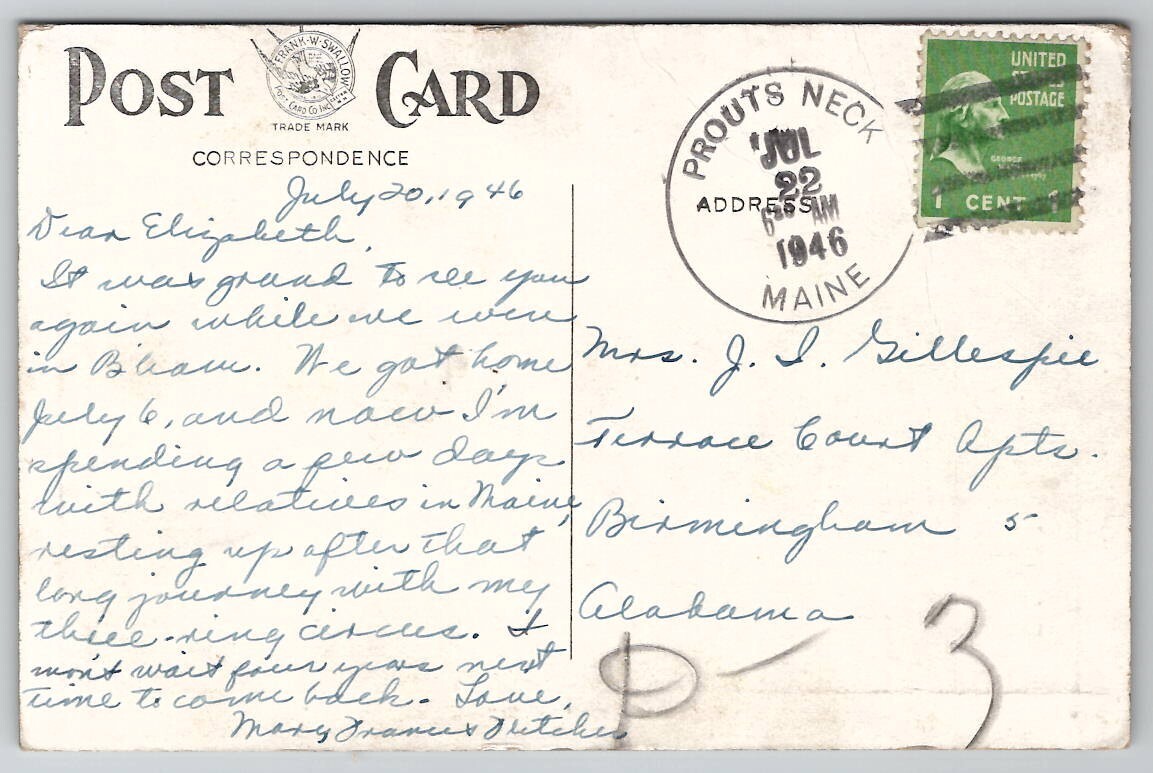 POST CARD
FRANK·W·SWALLOW
POST CARD CO. INC.
TRADE MARK
CORRESPONDENCE
July 20, 1946
Dear Elizabeth,
It was grand to see you
again while we were
in B'ham. We got home
July 6, and now I'm
spending a few days
with relatives in Maine,
resting up after that
long journey with my
three-ring circus. I
won't wait four years next
time to come back. Love,
Mary Frances Fletcher
PROUTS NECK
JUL
22
6 AM
1946
MAINE
ADDRESS
UNITED
STATES
POSTAGE
GEORGE
1 CENT 1
Mrs. J. I. Gillespie
Terrace Court Apts.
Birmingham 5
Alabama
P - 3